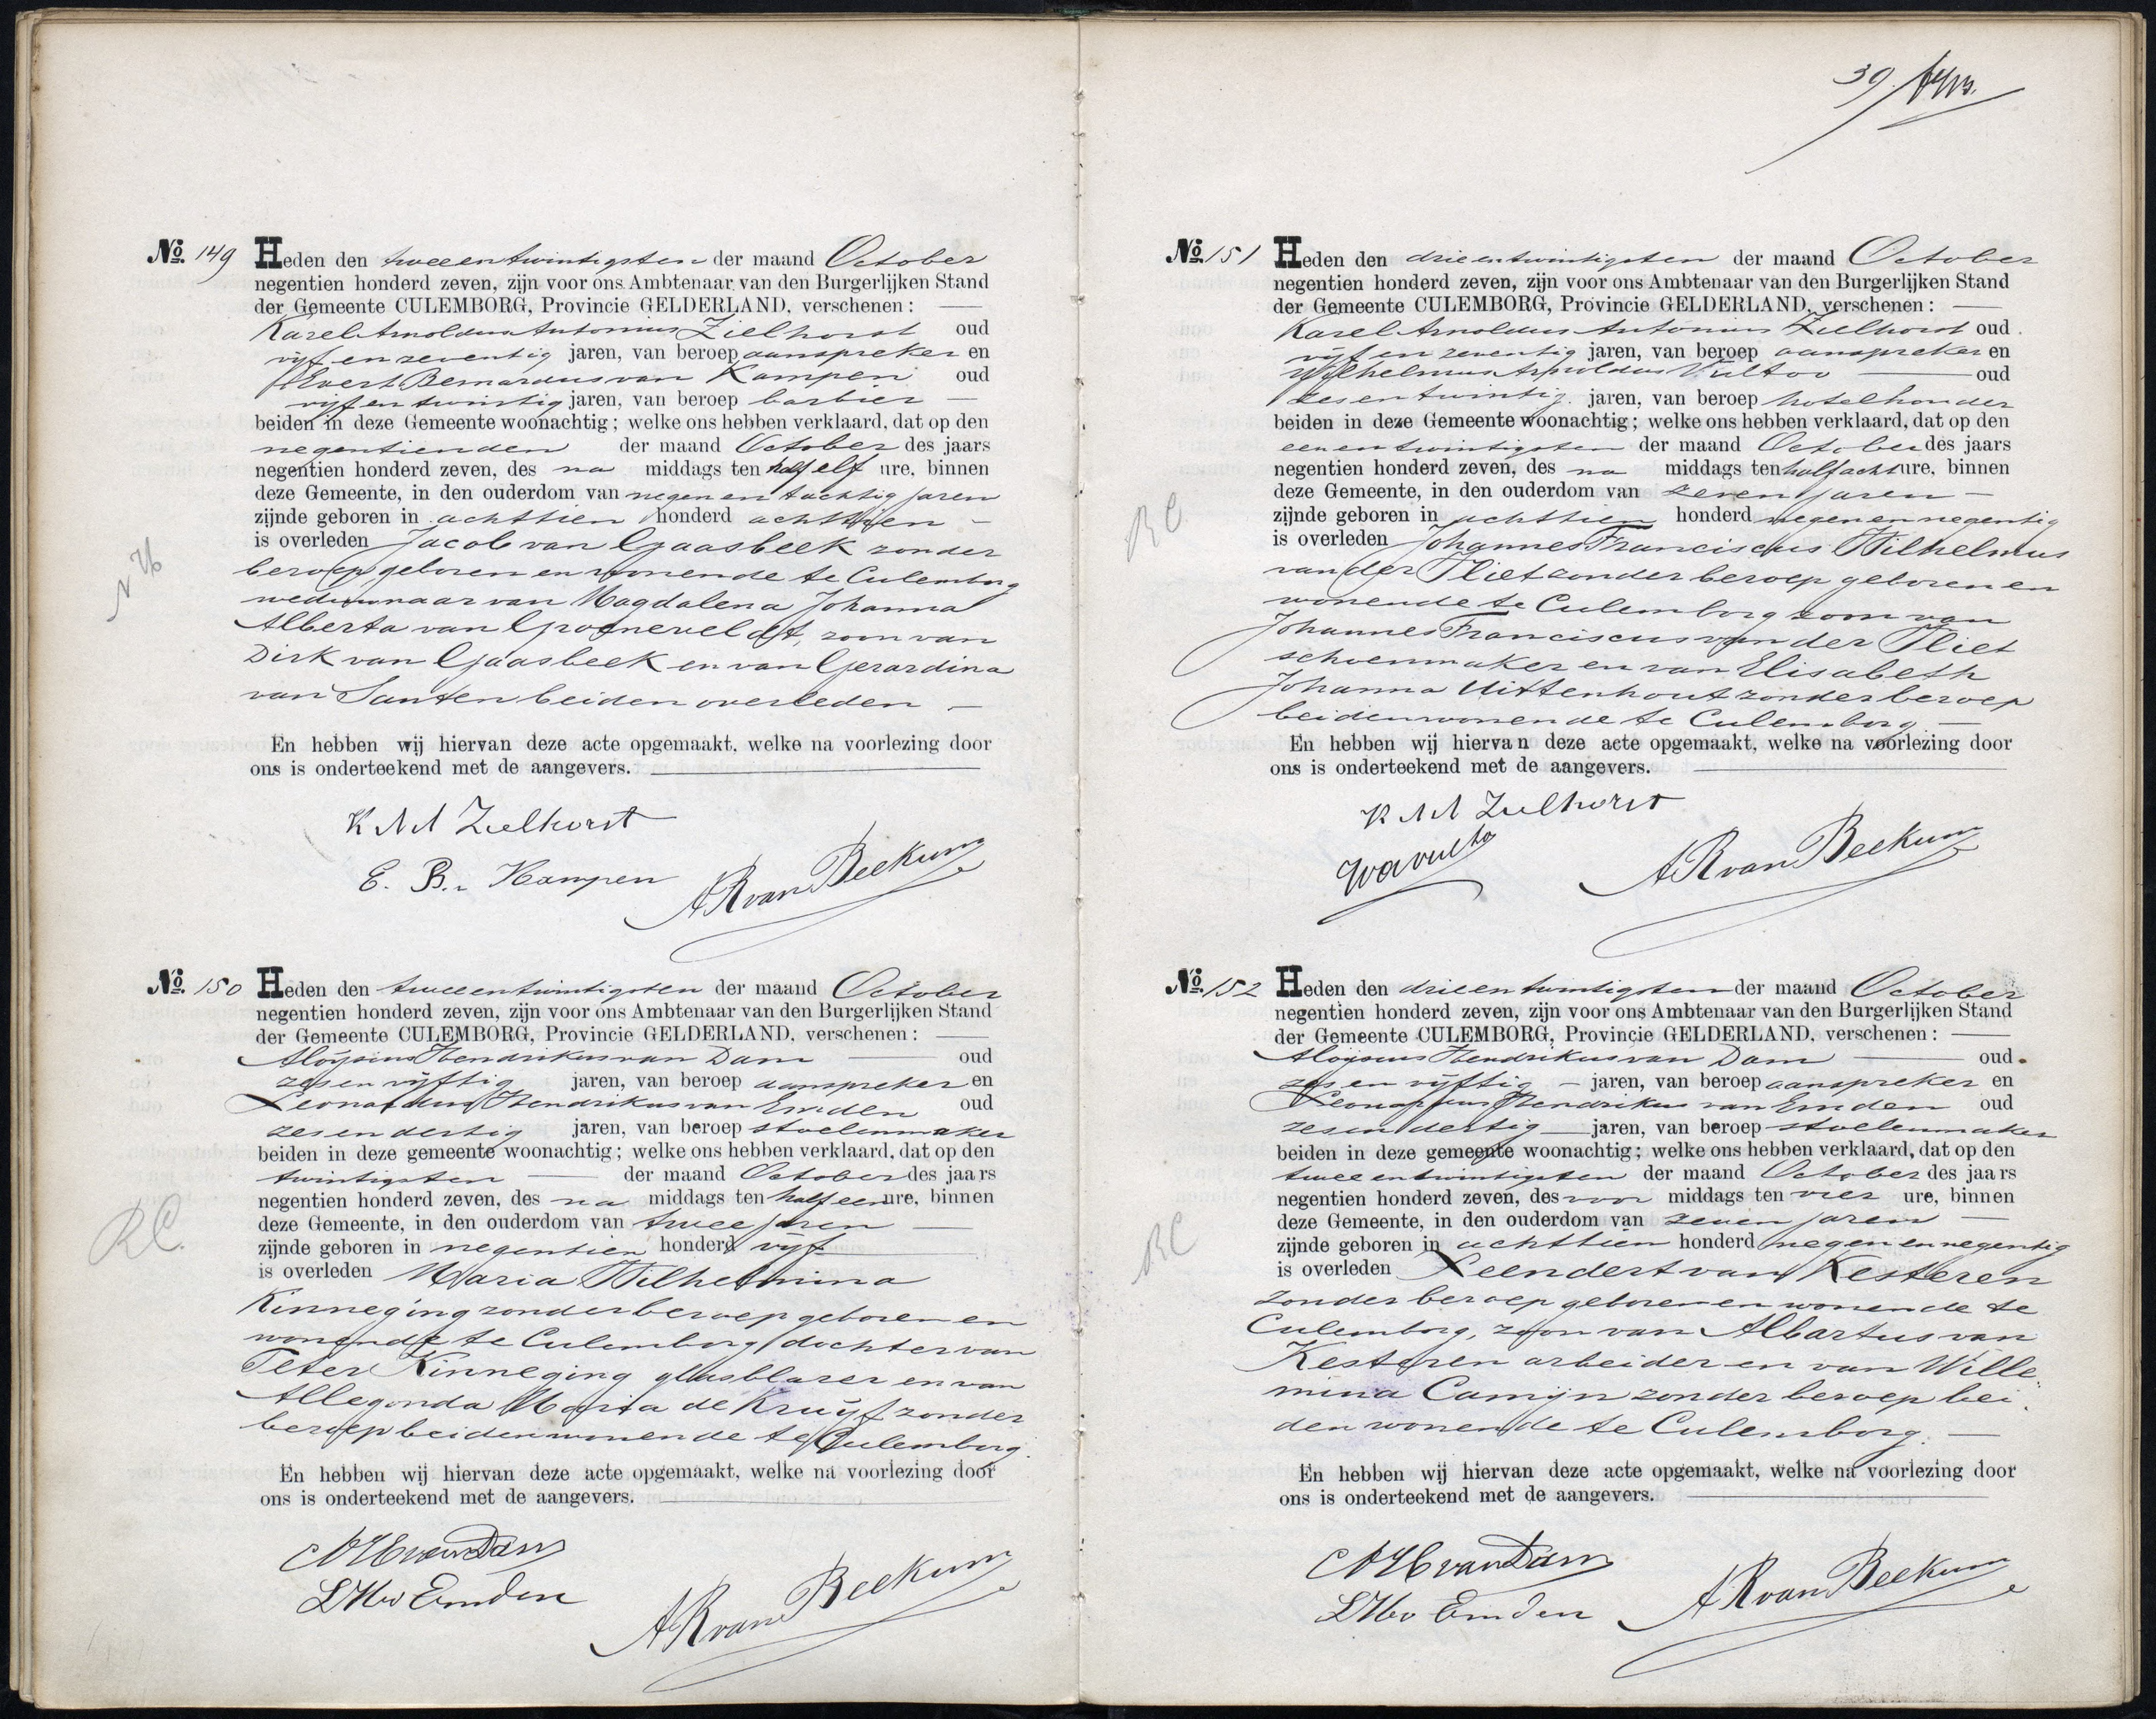 No. 149 Heden den tweeentwintigsten der maand October
negentien honderd zeven, zijn voor ons Ambtenaar van den Burgerlijken Stand
der Gemeente CULEMBORG, Provincie GELDERLAND, verschenen:
Karel Arnoldus Antonius Zielhorst oud
vijf en zeventig jaren, van beroep aanspreker en
Evert Bernardus van Kampen oud
vijf en twintig jaren, van beroep barbier
beiden in deze Gemeente woonachtig; welke ons hebben verklaard, dat op den
negentienden der maand October des jaars
negentien honderd zeven, des na middags ten half elf ure, binnen
deze Gemeente, in den ouderdom van negen en tachtig jaren
zijnde geboren in achttien honderd achttien
is overleden Jacob van Gaasbeek zonder
beroep, geboren en wonende te Culemborg
weduwnaar van Magdalena Johanna
Alberta van Groeneveldt, zoon van
Dirk van Gaasbeek en van Gerardina
van Santen beiden overleden
En hebben wij hiervan deze acte opgemaakt, welke na voorlezing door
ons is onderteekend met de aangevers.
N H
K A A Zielhorst
E. B. v Kampen
A R van Beekum
No. 150 Heden den tweeentwintigsten der maand October
negentien honderd zeven, zijn voor ons Ambtenaar van den Burgerlijken Stand
der Gemeente CULEMBORG, Provincie GELDERLAND, verschenen:
Aloysius Hendrikus van Dam oud
zes en vijftig jaren, van beroep aanspreker en
Leonardus Hendrikus van Emden oud
zes en dertig jaren, van beroep stoelenmaker
beiden in deze gemeente woonachtig; welke ons hebben verklaard, dat op den
twintigsten der maand October des jaars
negentien honderd zeven, des na middags ten half een ure, binnen
deze Gemeente, in den ouderdom van twee jaren
zijnde geboren in negentien honderd vijf
is overleden Maria Wilhelmina
Kinneging zonder beroep geboren en
wonende te Culemborg, dochter van
Peter Kinneging glasblazer en van
Allegonda Maria de Kruijf zonder
beroep beiden wonende te Culemborg.
En hebben wij hiervan deze acte opgemaakt, welke na voorlezing door
ons is onderteekend met de aangevers.
RC.
A H van Dam
L H v Emden
A R van Beekum
39
No. 151 Heden den drieentwintigsten der maand October
negentien honderd zeven, zijn voor ons Ambtenaar van den Burgerlijken Stand
der Gemeente CULEMBORG, Provincie GELDERLAND, verschenen:
Karel Arnoldus Antonius Zielhorst oud
vijf en zeventig jaren, van beroep aanspreker en
Wilhelmus Arnoldus Vultoo oud
zes en twintig jaren, van beroep hotelhouder
beiden in deze Gemeente woonachtig; welke ons hebben verklaard, dat op den
eenentwintigsten der maand October des jaars
negentien honderd zeven, des na middags ten half acht ure, binnen
deze Gemeente, in den ouderdom van zeven jaren
zijnde geboren in achttien honderd negen en negentig
is overleden Johannes Franciscus Wilhelmus
van der Vliet zonder beroep geboren en
wonende te Culemborg zoon van
Johannes Franciscus van der Vliet
schoenmaker en van Elisabeth
Johanna Uittenhout zonder beroep
beiden wonende te Culemborg
En hebben wij hiervan deze acte opgemaakt, welke na voorlezing door
ons is onderteekend met de aangevers.
RC
K A A Zielhorst
A R van Beekum
No. 152 Heden den drieentwintigsten der maand October
negentien honderd zeven, zijn voor ons Ambtenaar van den Burgerlijken Stand
der Gemeente CULEMBORG, Provincie GELDERLAND, verschenen:
Aloysius Hendrikus van Dam oud
zes en vijftig jaren, van beroep aanspreker en
Leonardus Hendrikus van Emden oud
zes en dertig jaren, van beroep stoelenmaker
beiden in deze gemeente woonachtig; welke ons hebben verklaard, dat op den
tweeentwintigsten der maand October des jaars
negentien honderd zeven, des voor middags ten vier ure, binnen
deze Gemeente, in den ouderdom van zeven jaren
zijnde geboren in achttien honderd negen en negentig
is overleden Leendert van Kesteren
zonder beroep geboren en wonende te
Culemborg, zoon van Albartus van
Kesteren arbeider en van Wille
mina Camijn zonder beroep bei
den wonende te Culemborg.
En hebben wij hiervan deze acte opgemaakt, welke na voorlezing door
ons is onderteekend met de aangevers.
RC
A H van Dam
L H v Emden
A R van Beekum